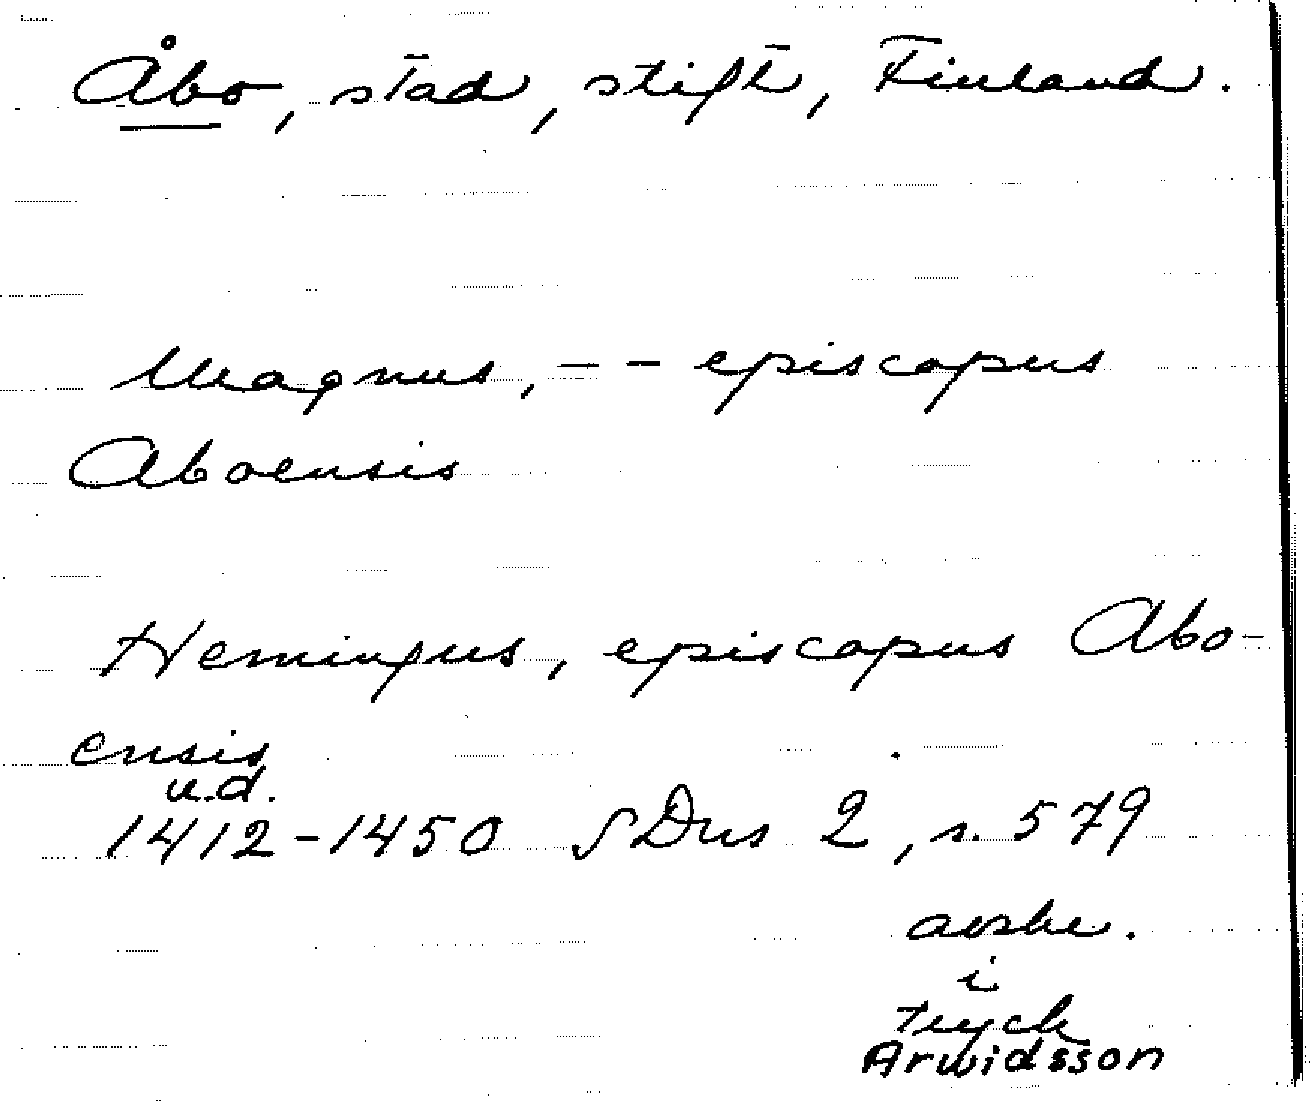 Åbo, stad, stift, Finland.
Magnus, - - episcopus
Aboensis
Hemingus, episcopus Abo-
ensis
u.d.
1412-1450 SDns 2, s. 579
avskr.
i
tryck
Arwidsson